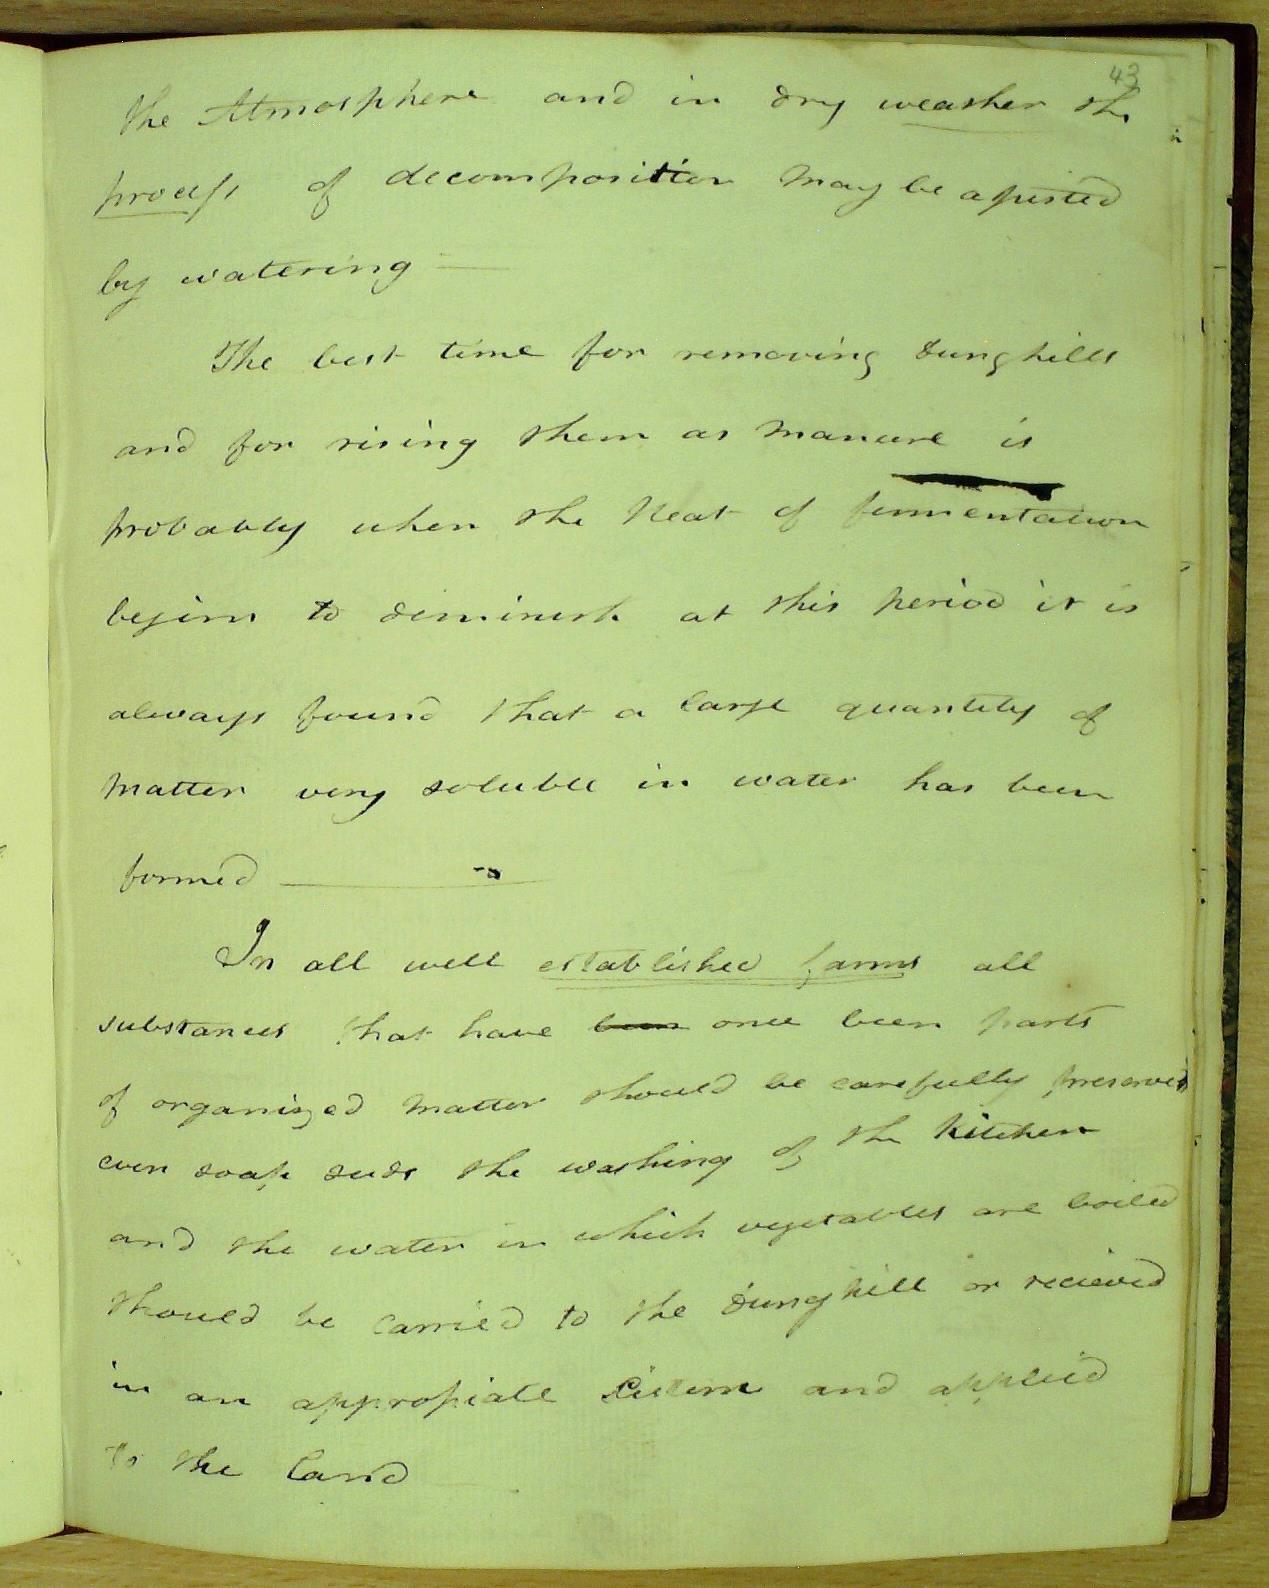 43
the Atmosphere and in dry weather the
process of decomposition may be assisted
by watering —
The best time for removing dunghills
and for rising them as manure is
probably when the heat of fermentation
begins to diminish at this period it is
always found that a large quantity of
matter very soluble in water has been
formed —
In all well established farms all
substances that have been once been parts
of organized matter should be carefully preserved
even soap suds the washing of the kitchen
and the water in which vegetables are boiled
should be carried to the dunghill or recieved
in an appropiate Cistern and applied
to the land